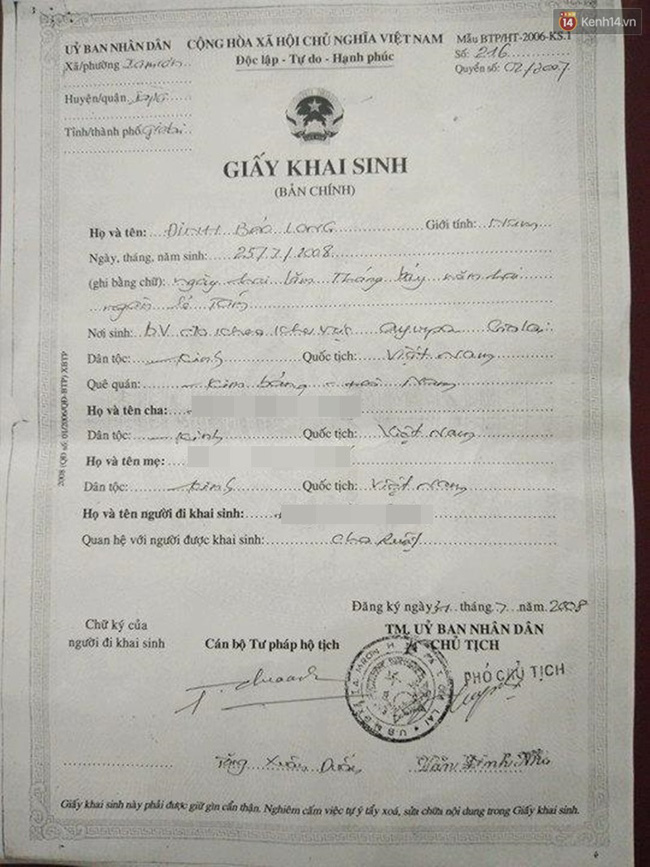 14 Kenh14.vn
ỦY BAN NHÂN DÂN
Xã/phường Iamrơn
Huyện/quận
Tỉnh/thành phố Gialai
CỘNG HÒA XÃ HỘI CHỦ NGHĨA VIỆT NAM
Độc lập - Tự do - Hạnh phúc
Mẫu BTP/HT-2006-KS.1
Số: 216
Quyển số: 02/2007
GIẤY KHAI SINH
(BẢN CHÍNH)
Họ và tên: ĐINH BẢO LONG Giới tính: Nam
Ngày, tháng, năm sinh: 25/7/2008
(ghi bằng chữ): ngày hai lăm tháng bảy năm hai
ngàn lẻ tám
Nơi sinh: BV đa khoa khu vực Ayunpa Gialai
Dân tộc: Kinh Quốc tịch: Việt Nam
Quê quán: Kim Bảng - Hà Nam
Họ và tên cha:
Dân tộc: Kinh Quốc tịch: Việt Nam
Họ và tên mẹ:
Dân tộc: Kinh Quốc tịch: Việt Nam
Họ và tên người đi khai sinh:
Quan hệ với người được khai sinh: Cha ruột
Đăng ký ngày 31 tháng 7 năm 2008
Chữ ký của
người đi khai sinh
Cán bộ Tư pháp hộ tịch
TM. UỶ BAN NHÂN DÂN
CHỦ TỊCH
PHÓ CHỦ TỊCH
Tăng Xuân
Văn Đình
Giấy khai sinh này phải được giữ gìn cẩn thận. Nghiêm cấm việc tự ý tẩy xoá, sửa chữa nội dung trong Giấy khai sinh.
2008 (QĐ số: 01/2006/QĐ-BTP) XBTP